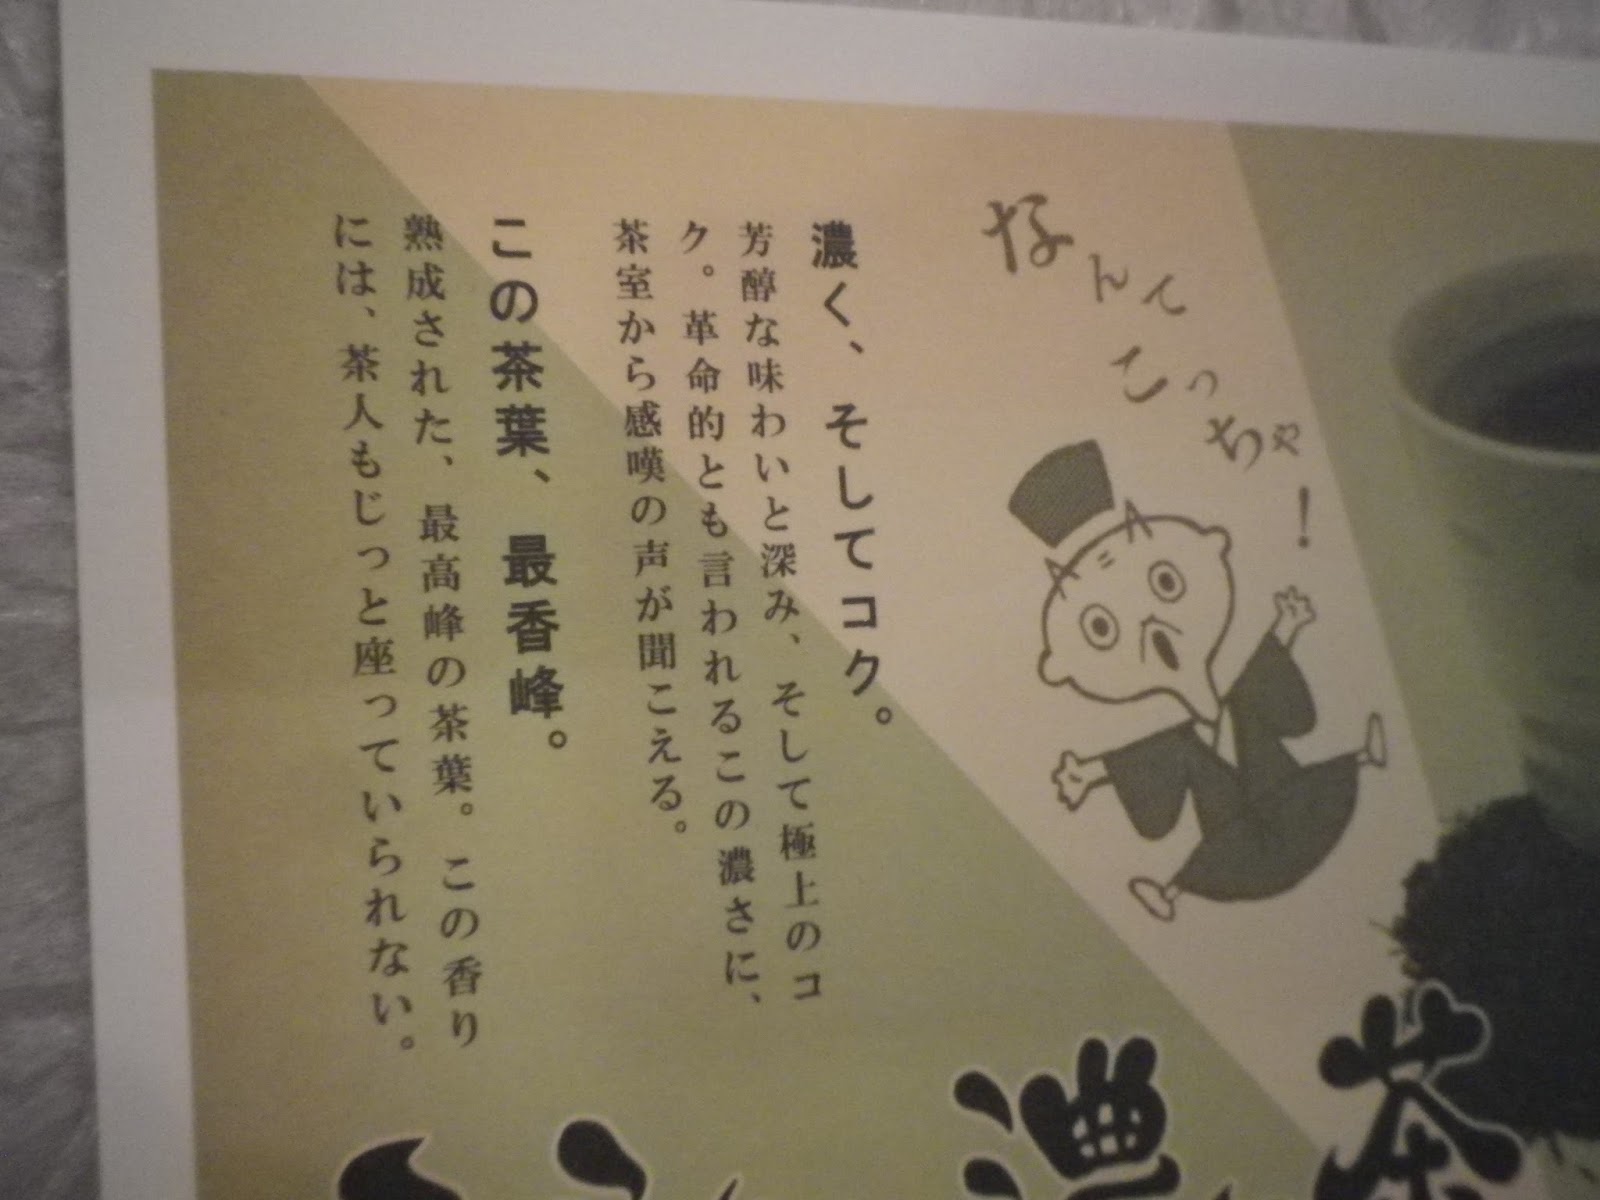 なんてこっちゃ!
濃く、そしてコク。
芳醇な味わいと深み、そして極上のコ
ク。革命的とも言われるこの濃さに、
茶室から感嘆の声が聞こえる。
この茶葉、最香峰。
熟成された、最高峰の茶葉。この香り
には、茶人もじっと座っていられない。
濃
茶